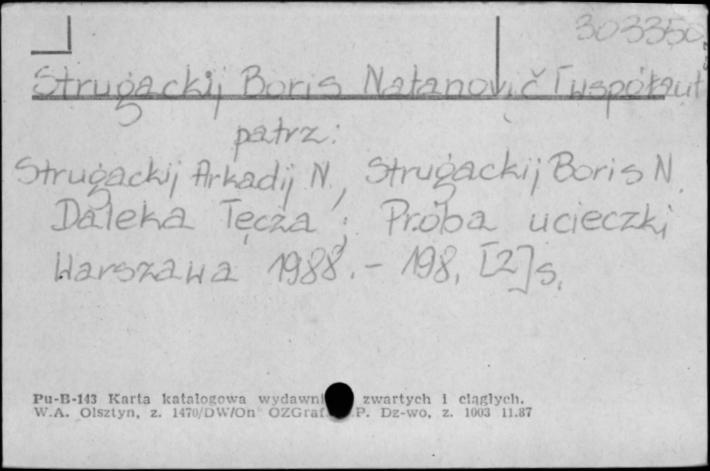 303350
Strugackij Boris Natanovič [współaut
patrz:
Strugackij Arkadij N., Strugackij Boris N.
Daleka Tęcza ; Próba ucieczki
Warszawa 1988. - 198, [2] s.
Pu-B-143 Karta katalogowa wydawni zwartych i ciągłych.
W.A. Olsztyn, z. 1470/DW/On OZGraf. P. Dz-wo, z. 1003 11.87